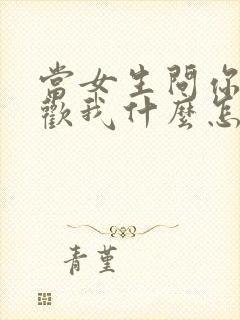 當女生問你
歡我什麼怎
青堇